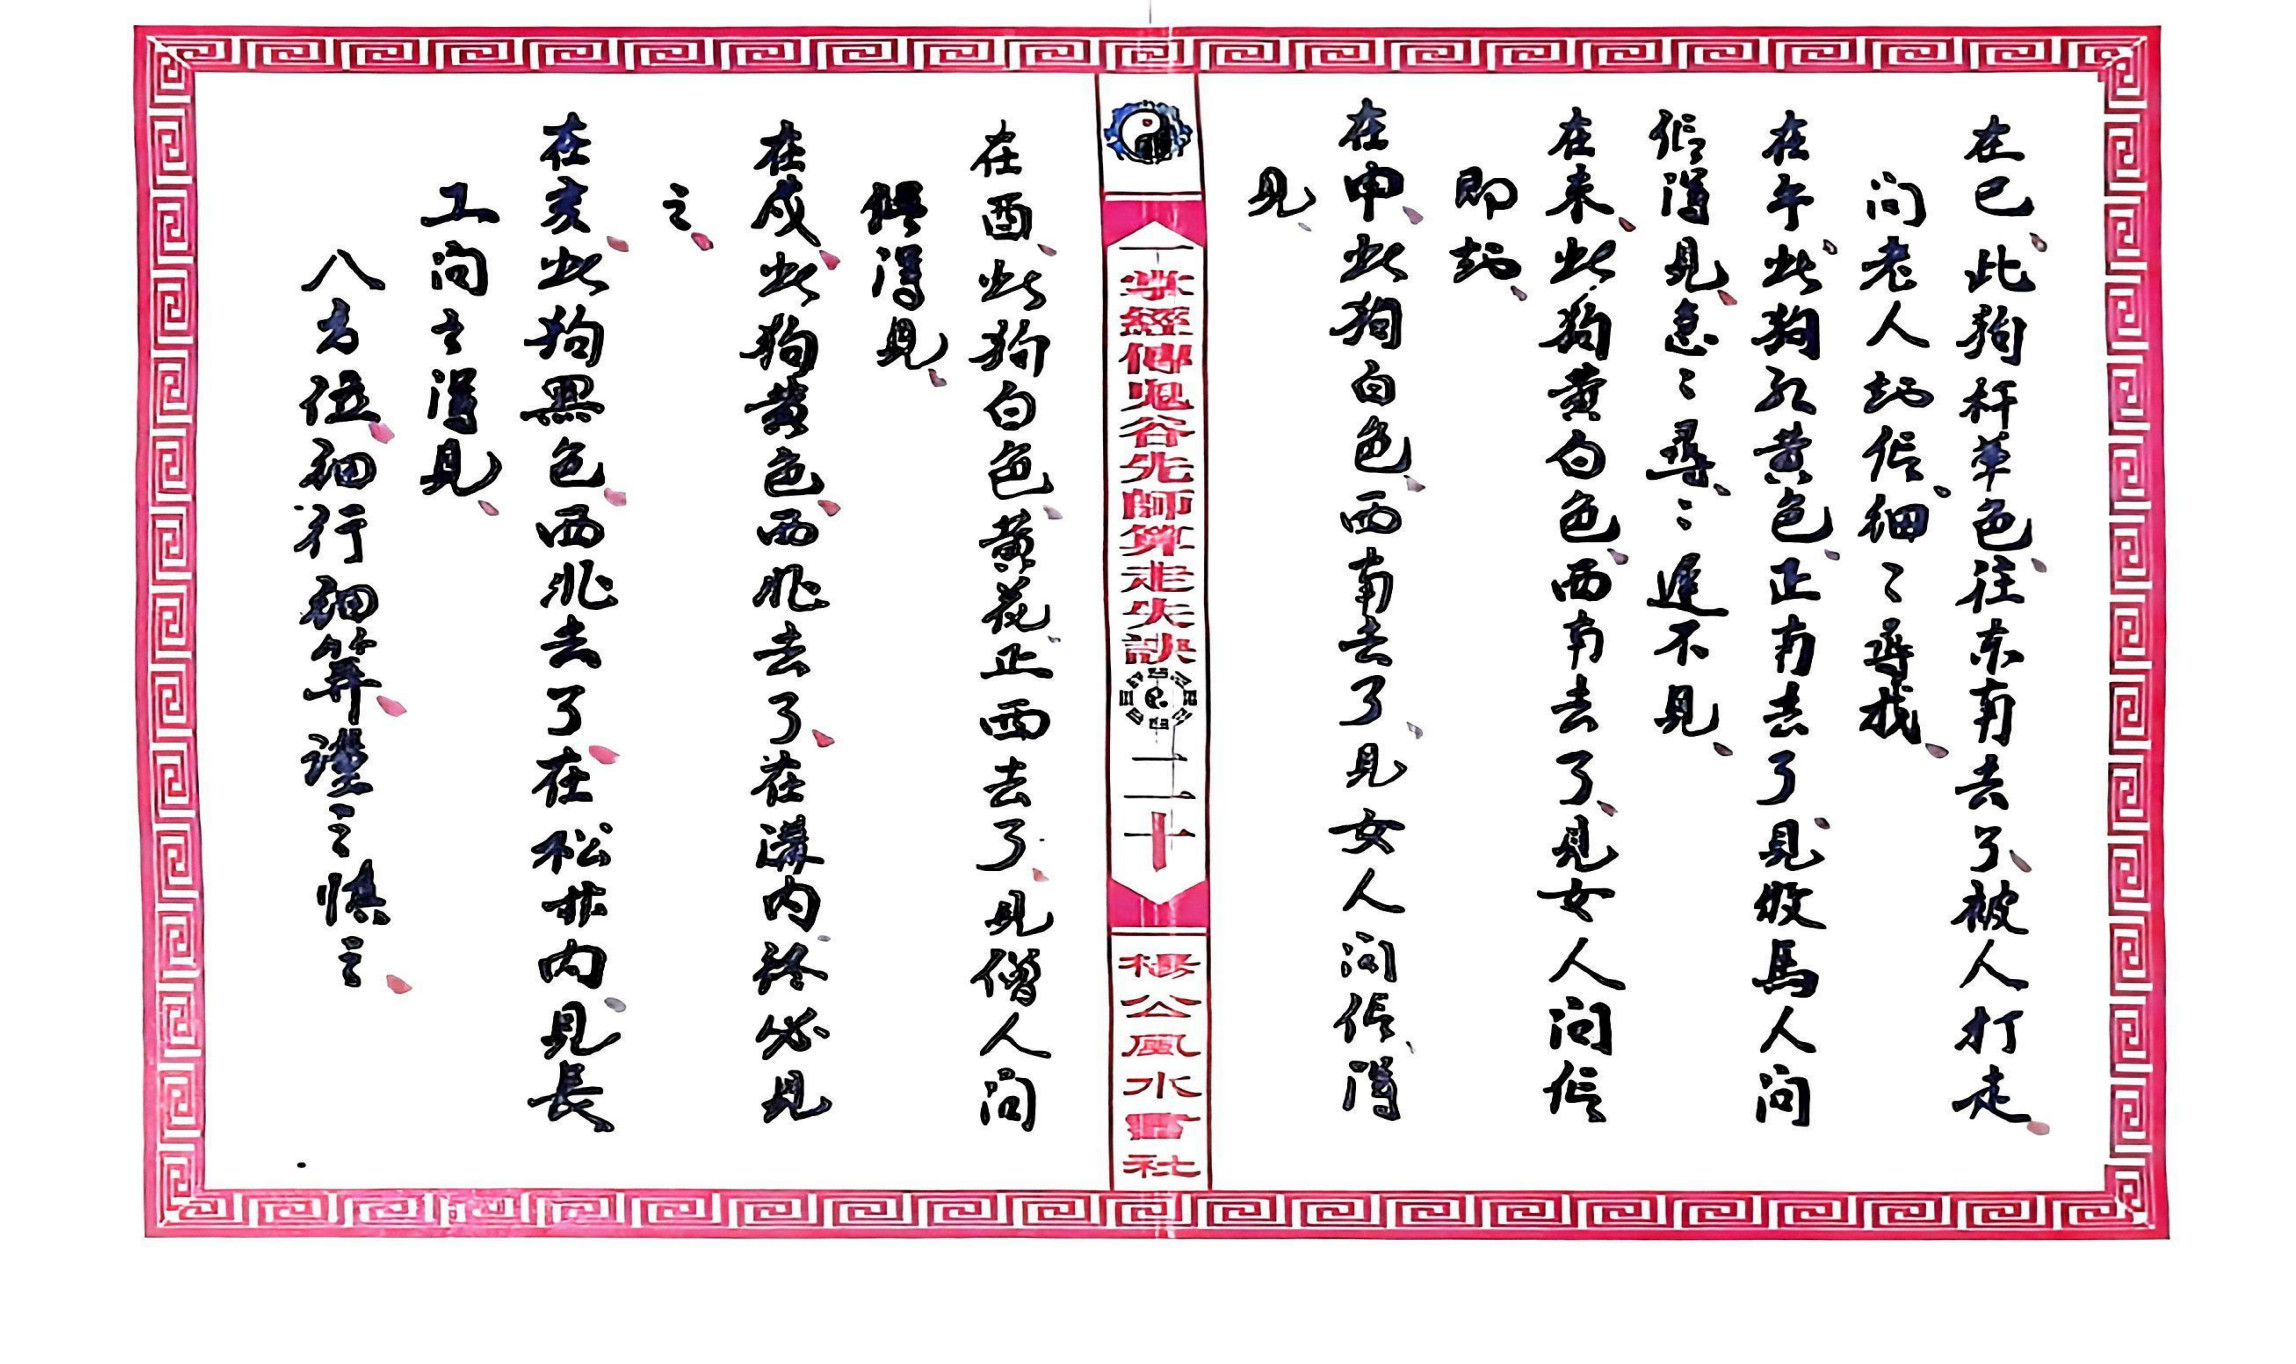 在巳此狗杆草色往东南去了被人打走
问老人知信细〻尋找
在午此狗红黄色正南去了見牧馬人问
信得見急〻尋〻遲不見
在未此狗黄白色西南去了見女人问信
即知
在申此狗白色西南去了見女人问信得
見
一掌經傳鬼谷先師算走失訣
二十
楊公風水書社
在酉此狗白色黄花正西去了見僧人问
信得見
在戍此狗黄色西北去了在溝内終必見
之
在亥此狗黑色西北去了在松林内見長
工问之得見
八方位细行细算謹之慎之